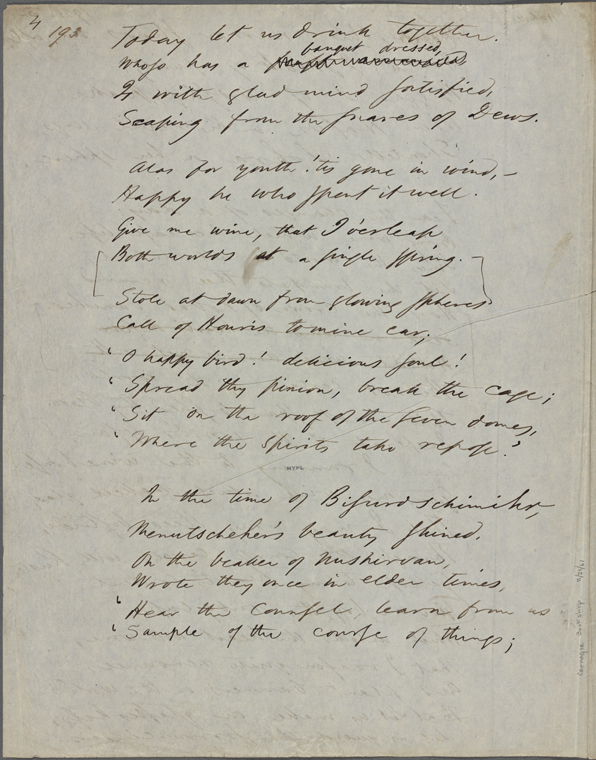 4
193
Today let us drink together.
Whoso has a banquet dressed,
Is with glad mind satisfied,
Scaping from the snares of Dews.
Alas for youth! 'tis gone in wind, –
Happy he who spent it well.
Give me wine, that I o'erleap
Both worlds at a single spring. –
Stole at dawn from glowing spheres
Call of Houris to mine ear;
"O happy bird! delicious soul!
"Spread thy pinion, break the cage;
"Sit on the roof of the seven domes,
"Where the spirits take repose."
NYPL
In the time of Bisurdschimihr,
Menutscheher's beauty shined.
On the beaker of Nushirvan,
Wrote they once in elder times,
"Hear the counsel, learn from us
"Sample of the course of things;